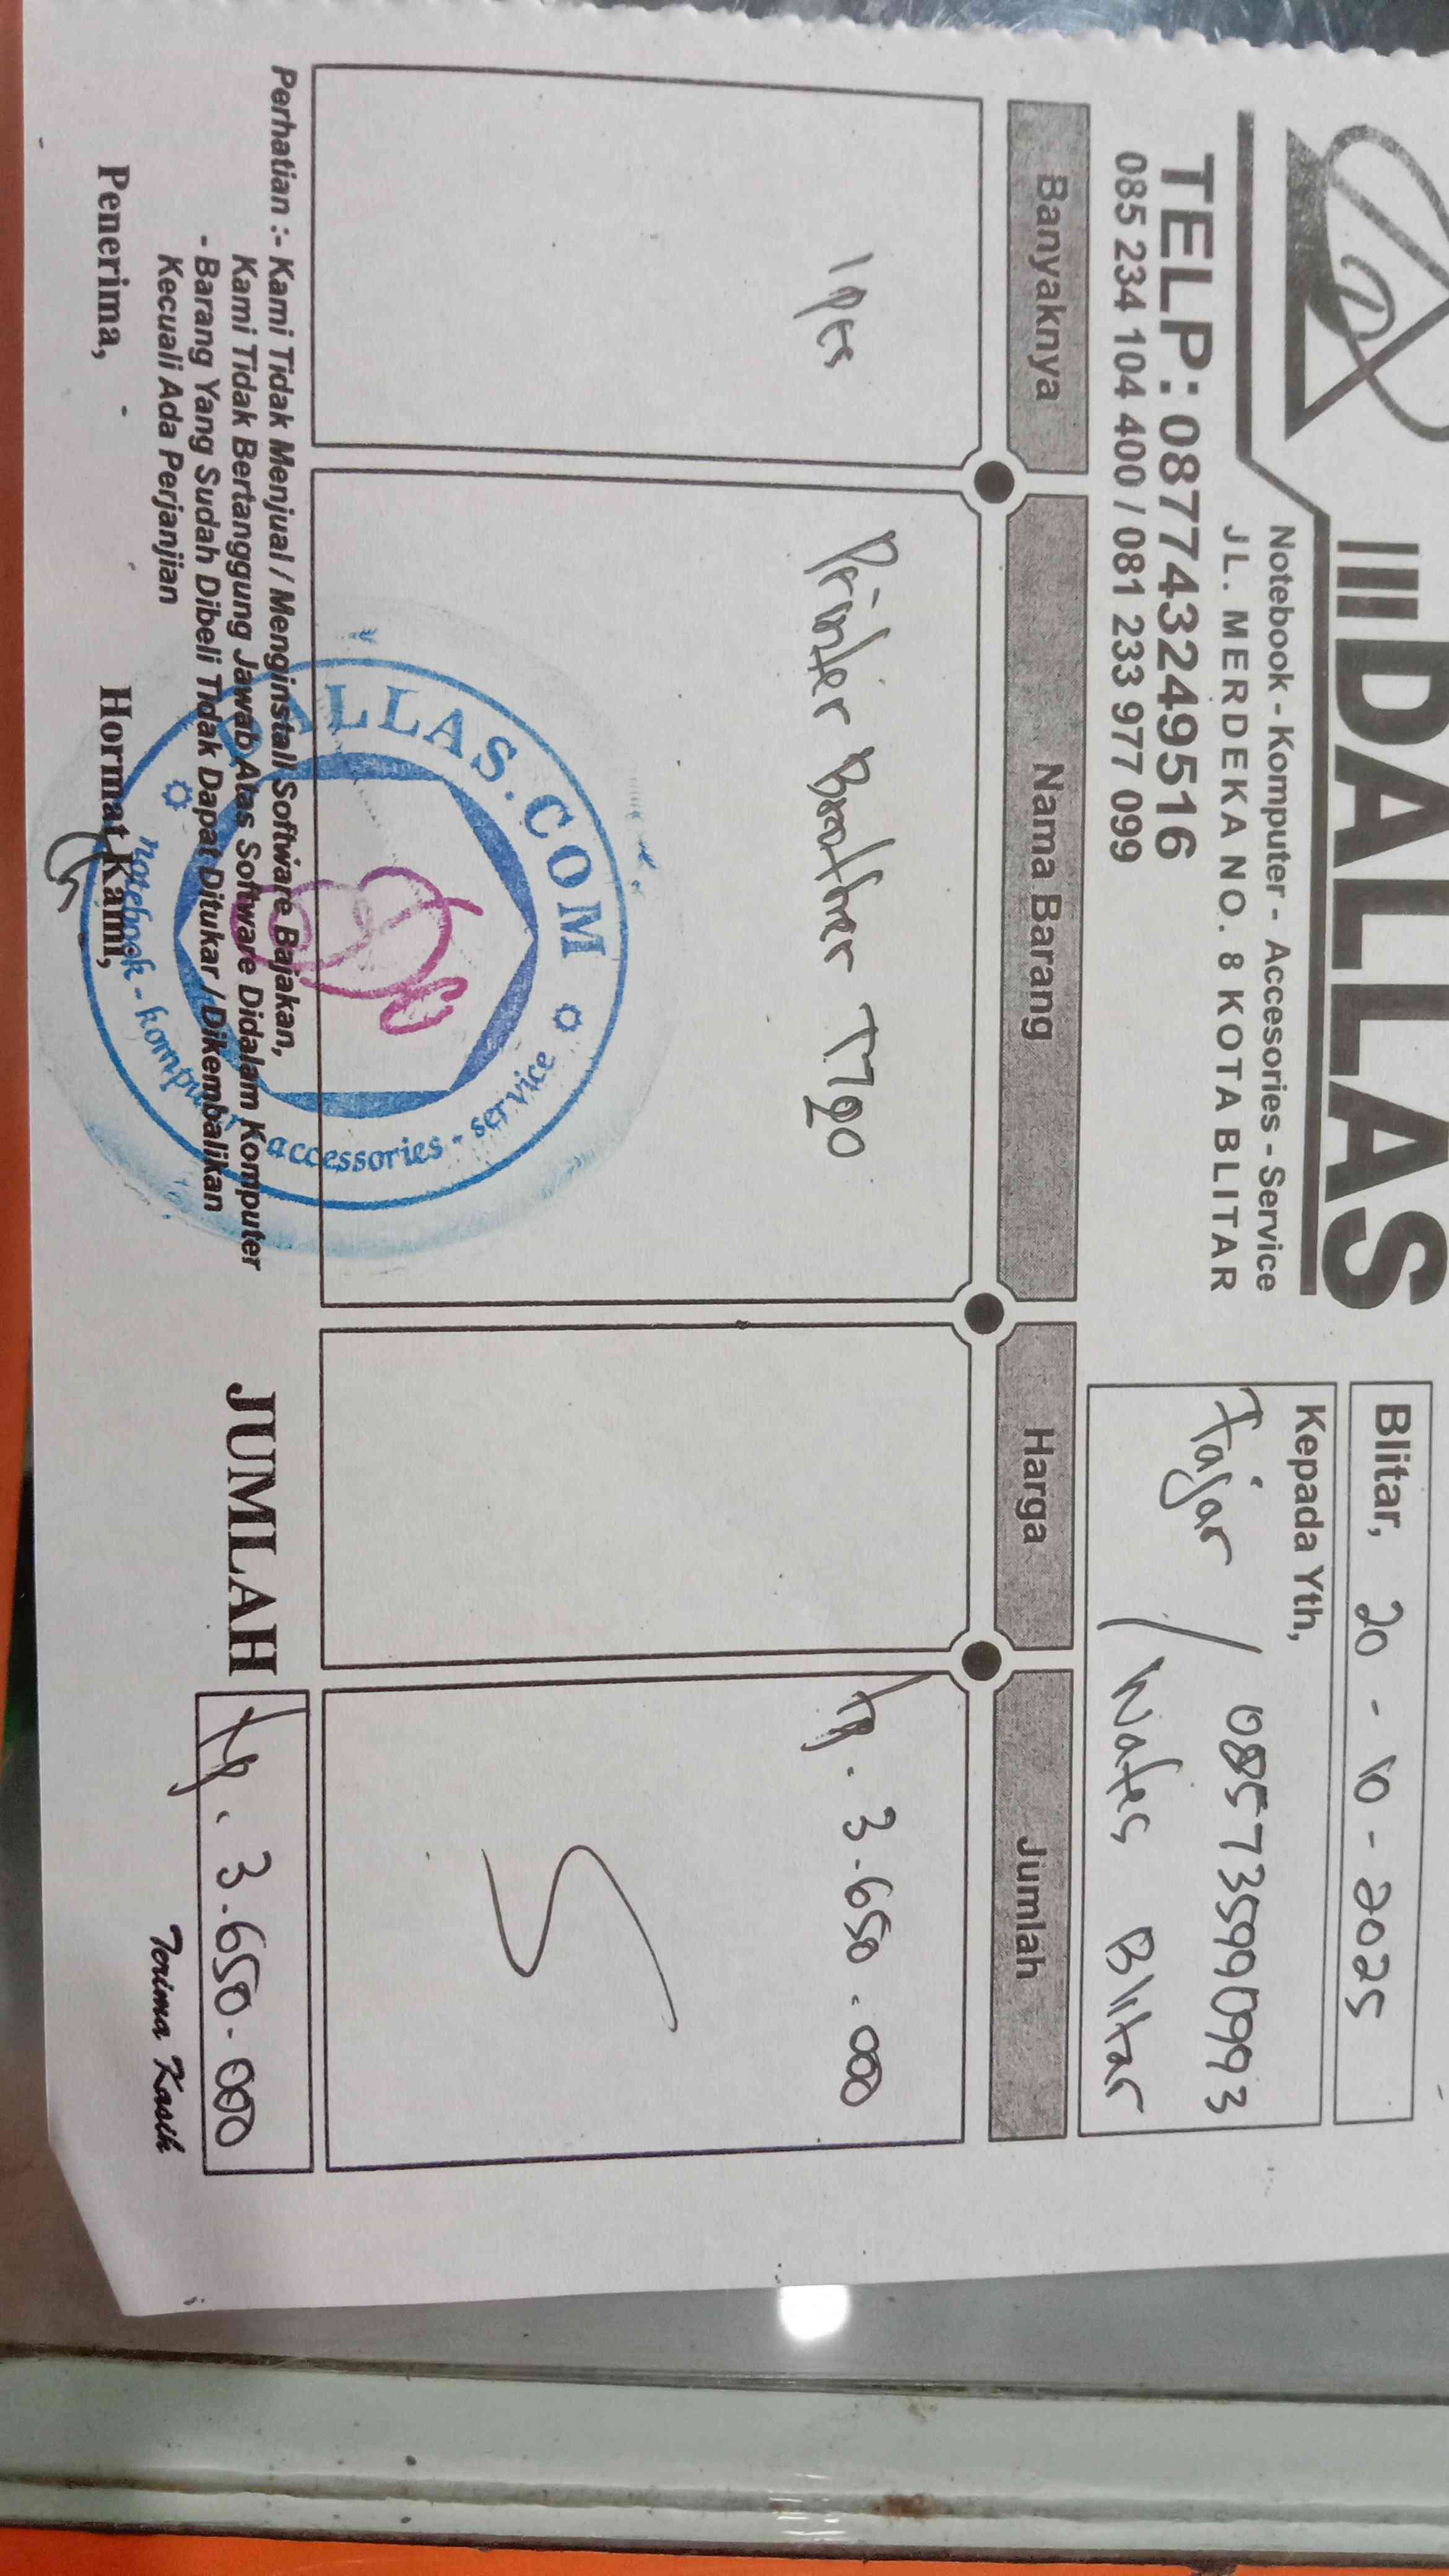 DALLAS
Notebook - Komputer - Accesories - Service
JL. MERDEKA NO. 8 KOTA BLITAR
TELP: 087743249516
085 234 104 400 / 081 233 977 099
Blitar, 20 - 10 - 2025
Kepada Yth,
Fajar / 085735990993
/ Wates Blitar
Banyaknya Nama Barang Harga Jumlah
1 pcs Printer Brother T720 Rp. 3.650.000
DALLAS.COM
notebook - komputer accessories - service
Perhatian :- Kami Tidak Menjual / Menginstall Software Bajakan,
Kami Tidak Bertanggung Jawab Atas Software Didalam Komputer
- Barang Yang Sudah Dibeli Tidak Dapat Ditukar / Dikembalikan
Kecuali Ada Perjanjian
JUMLAH Rp. 3.650.000
Penerima, Hormat Kami,
Terima Kasih